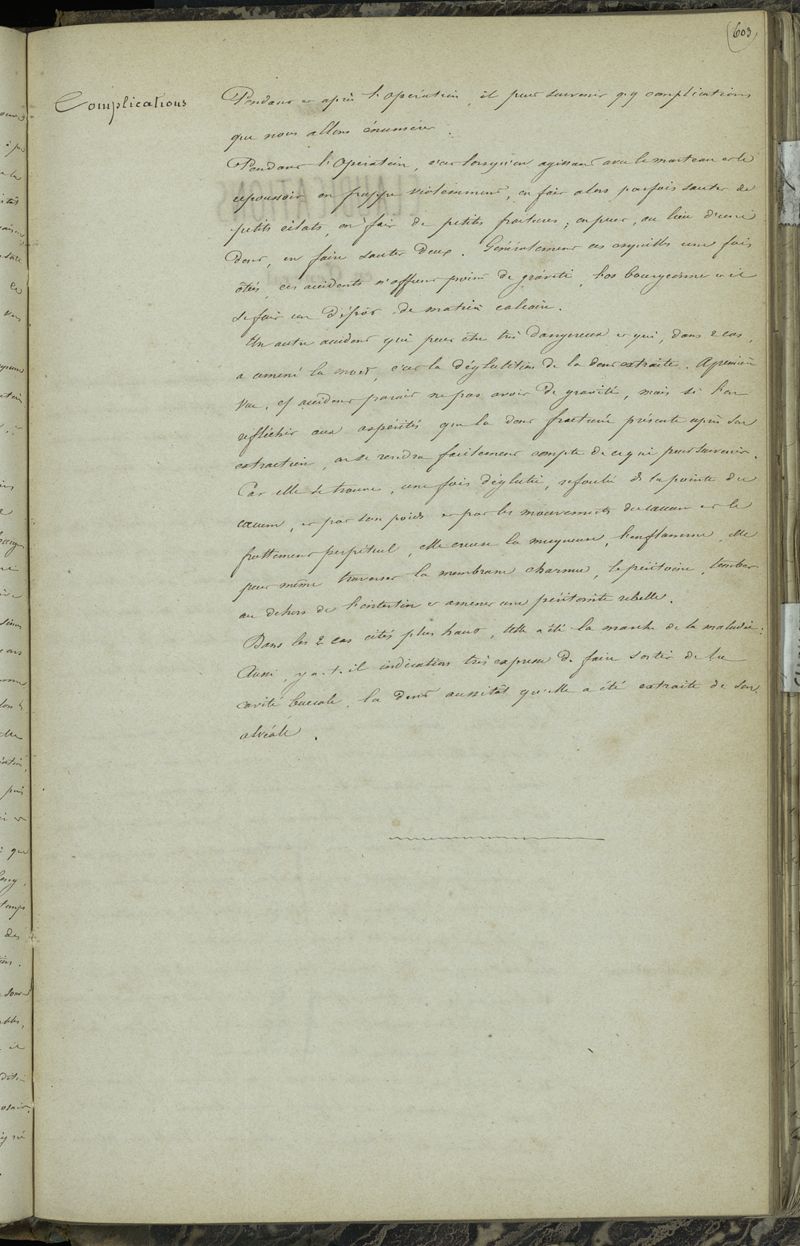 603
Complications
Pendant et après l'Opération, il peut survenir qq complications
que nous allons énumérer.
Pendant l'Opération, c'est lorsqu'en agissant avec le marteau et le
repoussoir on frappe violemment, on fait alors parfois sauter de
petits éclats, on fait de petits fractures; on peut, au lieu d'une
dent, en faire sauter deux. Généralement ces esquilles une fois
ôtées, ces accidents n'offrent point de gravité, l'os bourgeonne et il
se fait un dépôt de matière calcaire.
Un autre accident qui peut être très dangereux et qui, dans 2 cas,
a amené la mort, c'est la déglutition de la dent extraite. A première
vue, cet accident paraît ne pas avoir de gravité, mais si l'on
réfléchit aux aspérités que la dent fracturée présente après son
extraction, on se rendra facilement compte de ce qui peut survenir.
Car elle se trouve, une fois déglutie, refoulée ds la pointe du
cæcum, et par son poids et par les mouvements du cæcum et le
frottement perpétuel, elle creuse la muqueuse, l'enflamme, elle
peut même traverser la membrane charnue, le péritoine, tomber
au dehors de l'intestin et amener une péritonite rebelle.
Dans les 2 cas cités plus haut, telle a été la marche de la maladie.
Aussi, y a-t-il indication très expresse de faire sortir de la
cavité buccale, la dent aussitôt qu'elle a été extraite de son
alvéole.